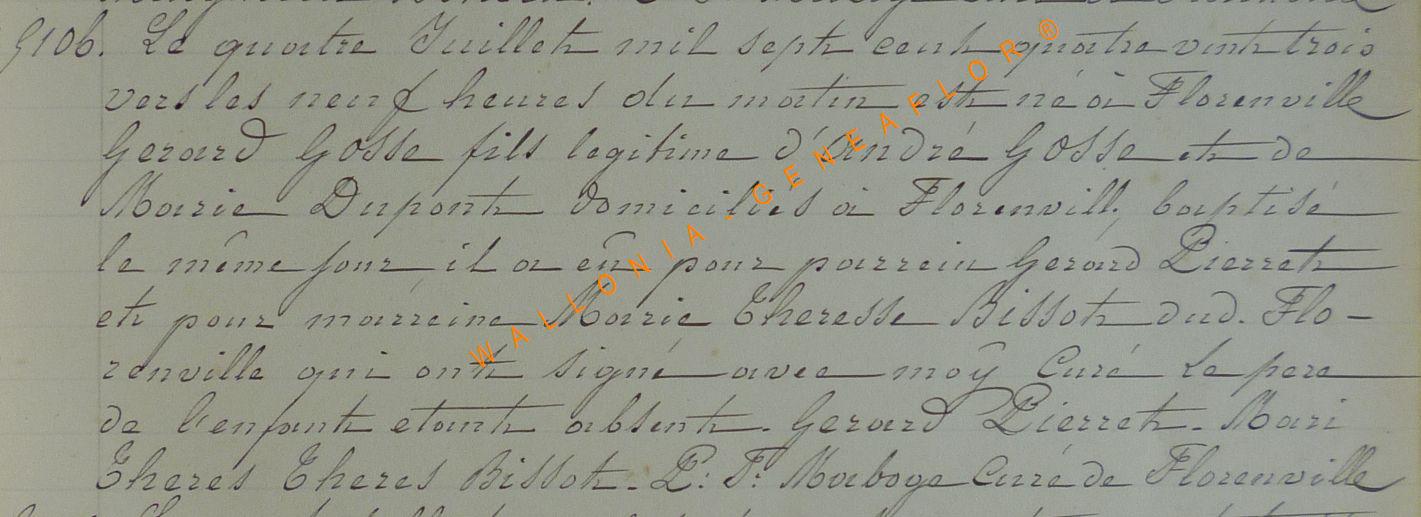 9106. Le quatre Juillet mil sept cent quatre vint trois
vers les neuf heures du matin est né à Florenville
Gerard Gosse fils legitime d'André Gosse et de
Marie Dupont domiciliés à Florenvill, baptisé
le même jour, il a eû pour parrein Gerard Pierret
et pour marreine Marie Theresse Bissot dud. Flo-
renville qui ont signé avec moÿ Curé Le pere
de l'enfant etant absent. Gerard Pierret. Mari
Theres Theres Bissot. P. F. Maboge Curé de Florenville
WALLONIA-GENEAFLOR®